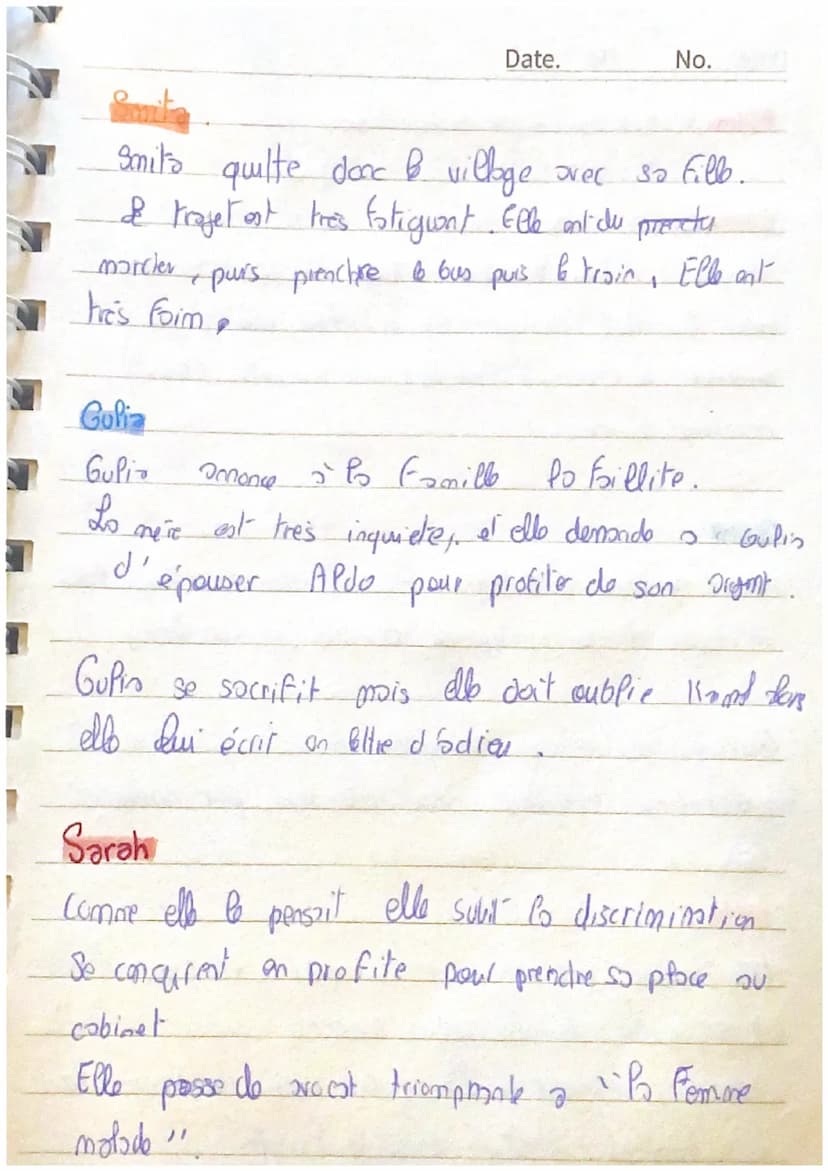 Date. No.
Smita.
Smita quitte donc le village avec sa fille.
Le trajet est très fatiguant. Elle ont du prendu
marcher, puis prenchre le bus puis le train, Elle ont
très faim.
Gulia
Gulia annonce à la famille la faillite.
La mère est très inquiete, et elle demande a Gulia
d'épouser Aldo pour profiter de son argent.
Gulia se sacrifit mais elle doit oublie
elle lui écrir un lettre d'adieu.
Sarah
Comme elle le pensait elle subit la discrimination
Se concurent en profite pour prendre sa place au
cabinet
Elle passe de avocat triomphante a "la femme
malade".